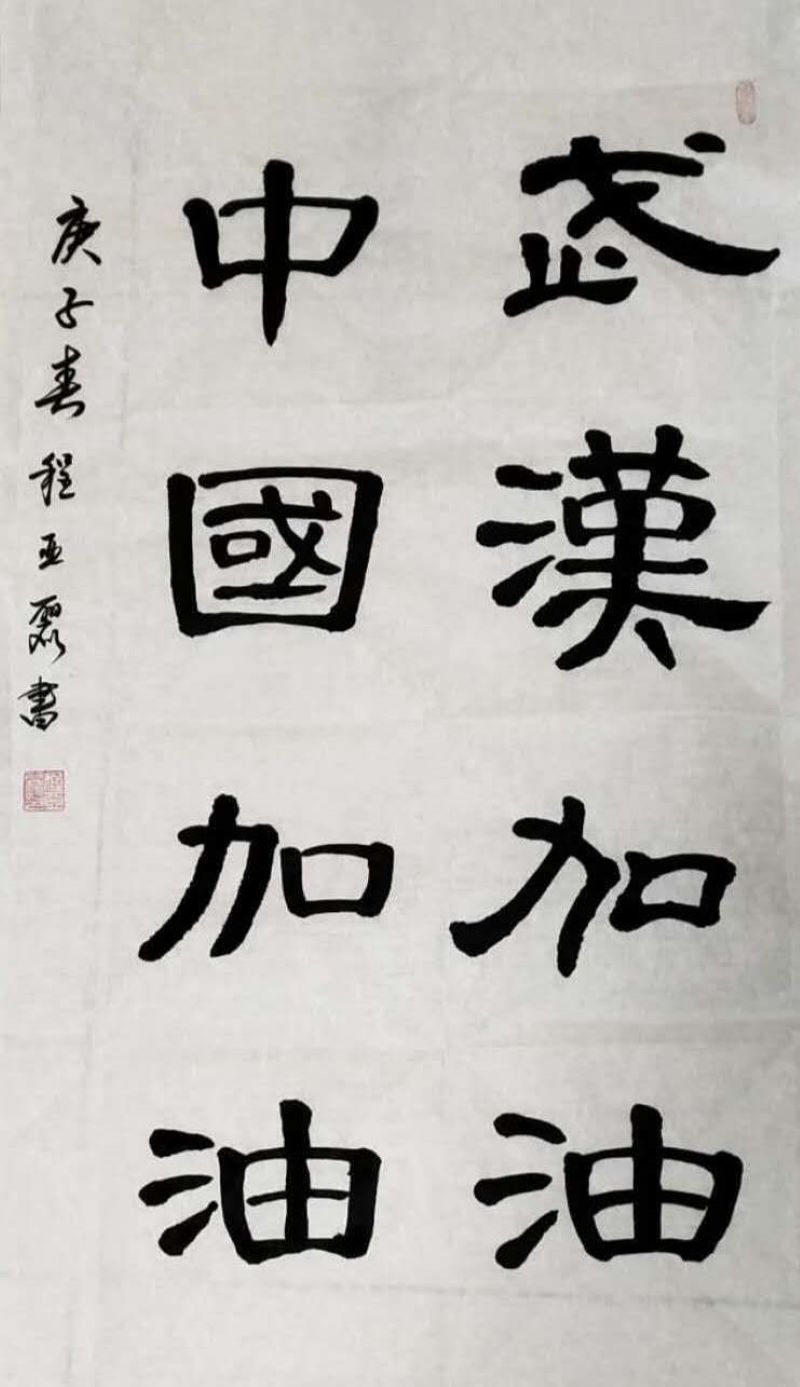 武漢加油
中國加油
庚子春程亚磊書